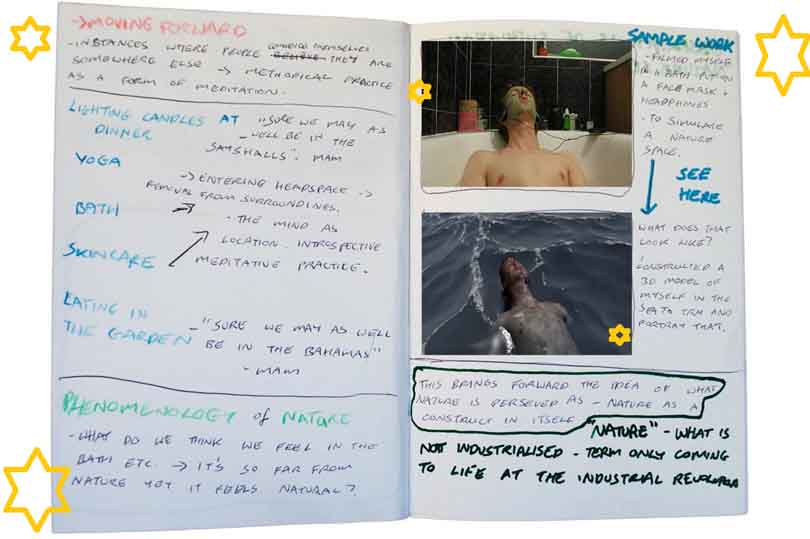 →MOVING FORWARD
- INSTANCES WHERE PEOPLE CONVINCE THEMSELVES BELIEVE THEY ARE
SOMEWHERE ELSE → METHODICAL PRACTICE
AS A FORM OF MEDITATION.
LIGHTING CANDLES AT DINNER
- "SURE WE MAY AS
WELL BE IN THE
". MAM
YOGA
→ ENTERING HEADSPACE →
REMOVAL FROM SURROUNDINGS.
BATH
- THE MIND AS
LOCATION. INTROSPECTIVE
MEDITATIVE PRACTICE.
SKINCARE
EATING IN
THE GARDEN
- "SURE WE MAY AS WELL
BE IN THE BAHAMAS"
- MAM
PHENOMENOLOGY of NATURE
- WHAT DO WE THINK WE FEEL IN THE
BATH ETC. → IT'S SO FAR FROM
NATURE YET IT FEELS NATURAL?
SAMPLE WORK
- FILMED MYSELF
IN A BATH PUT ON
A FACE MASK +
HEADPHONES
- TO SIMULATE
A NATURE
SPACE.
SEE
HERE
WHAT DOES THAT
LOOK LIKE?
CONSTRUCTED A
3D MODEL OF
MYSELF IN THE
SEA TO TRY AND
PORTRAY THAT.
THIS BRINGS FORWARD THE IDEA OF WHAT
NATURE IS PERSEVED AS - NATURE AS A
CONSTRUCT IN ITSELF
"NATURE" - WHAT IS
NOT INDUSTRIALISED - TERM ONLY COMING
TO LIFE AT THE INDUSTRIAL